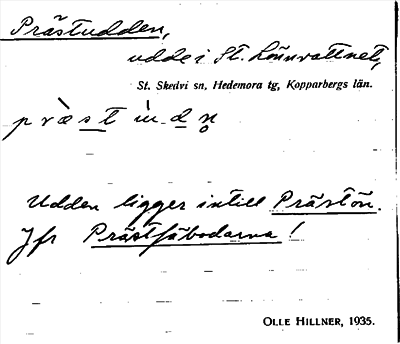 Prästudden,
udde i St. Lönnvattnet,
St. Skedvi sn, Hedemora tg, Kopparbergs län.
Udden ligger intill Prästön.
Jfr Prästfäbodarna!
OLLE HILLNER, 1935.